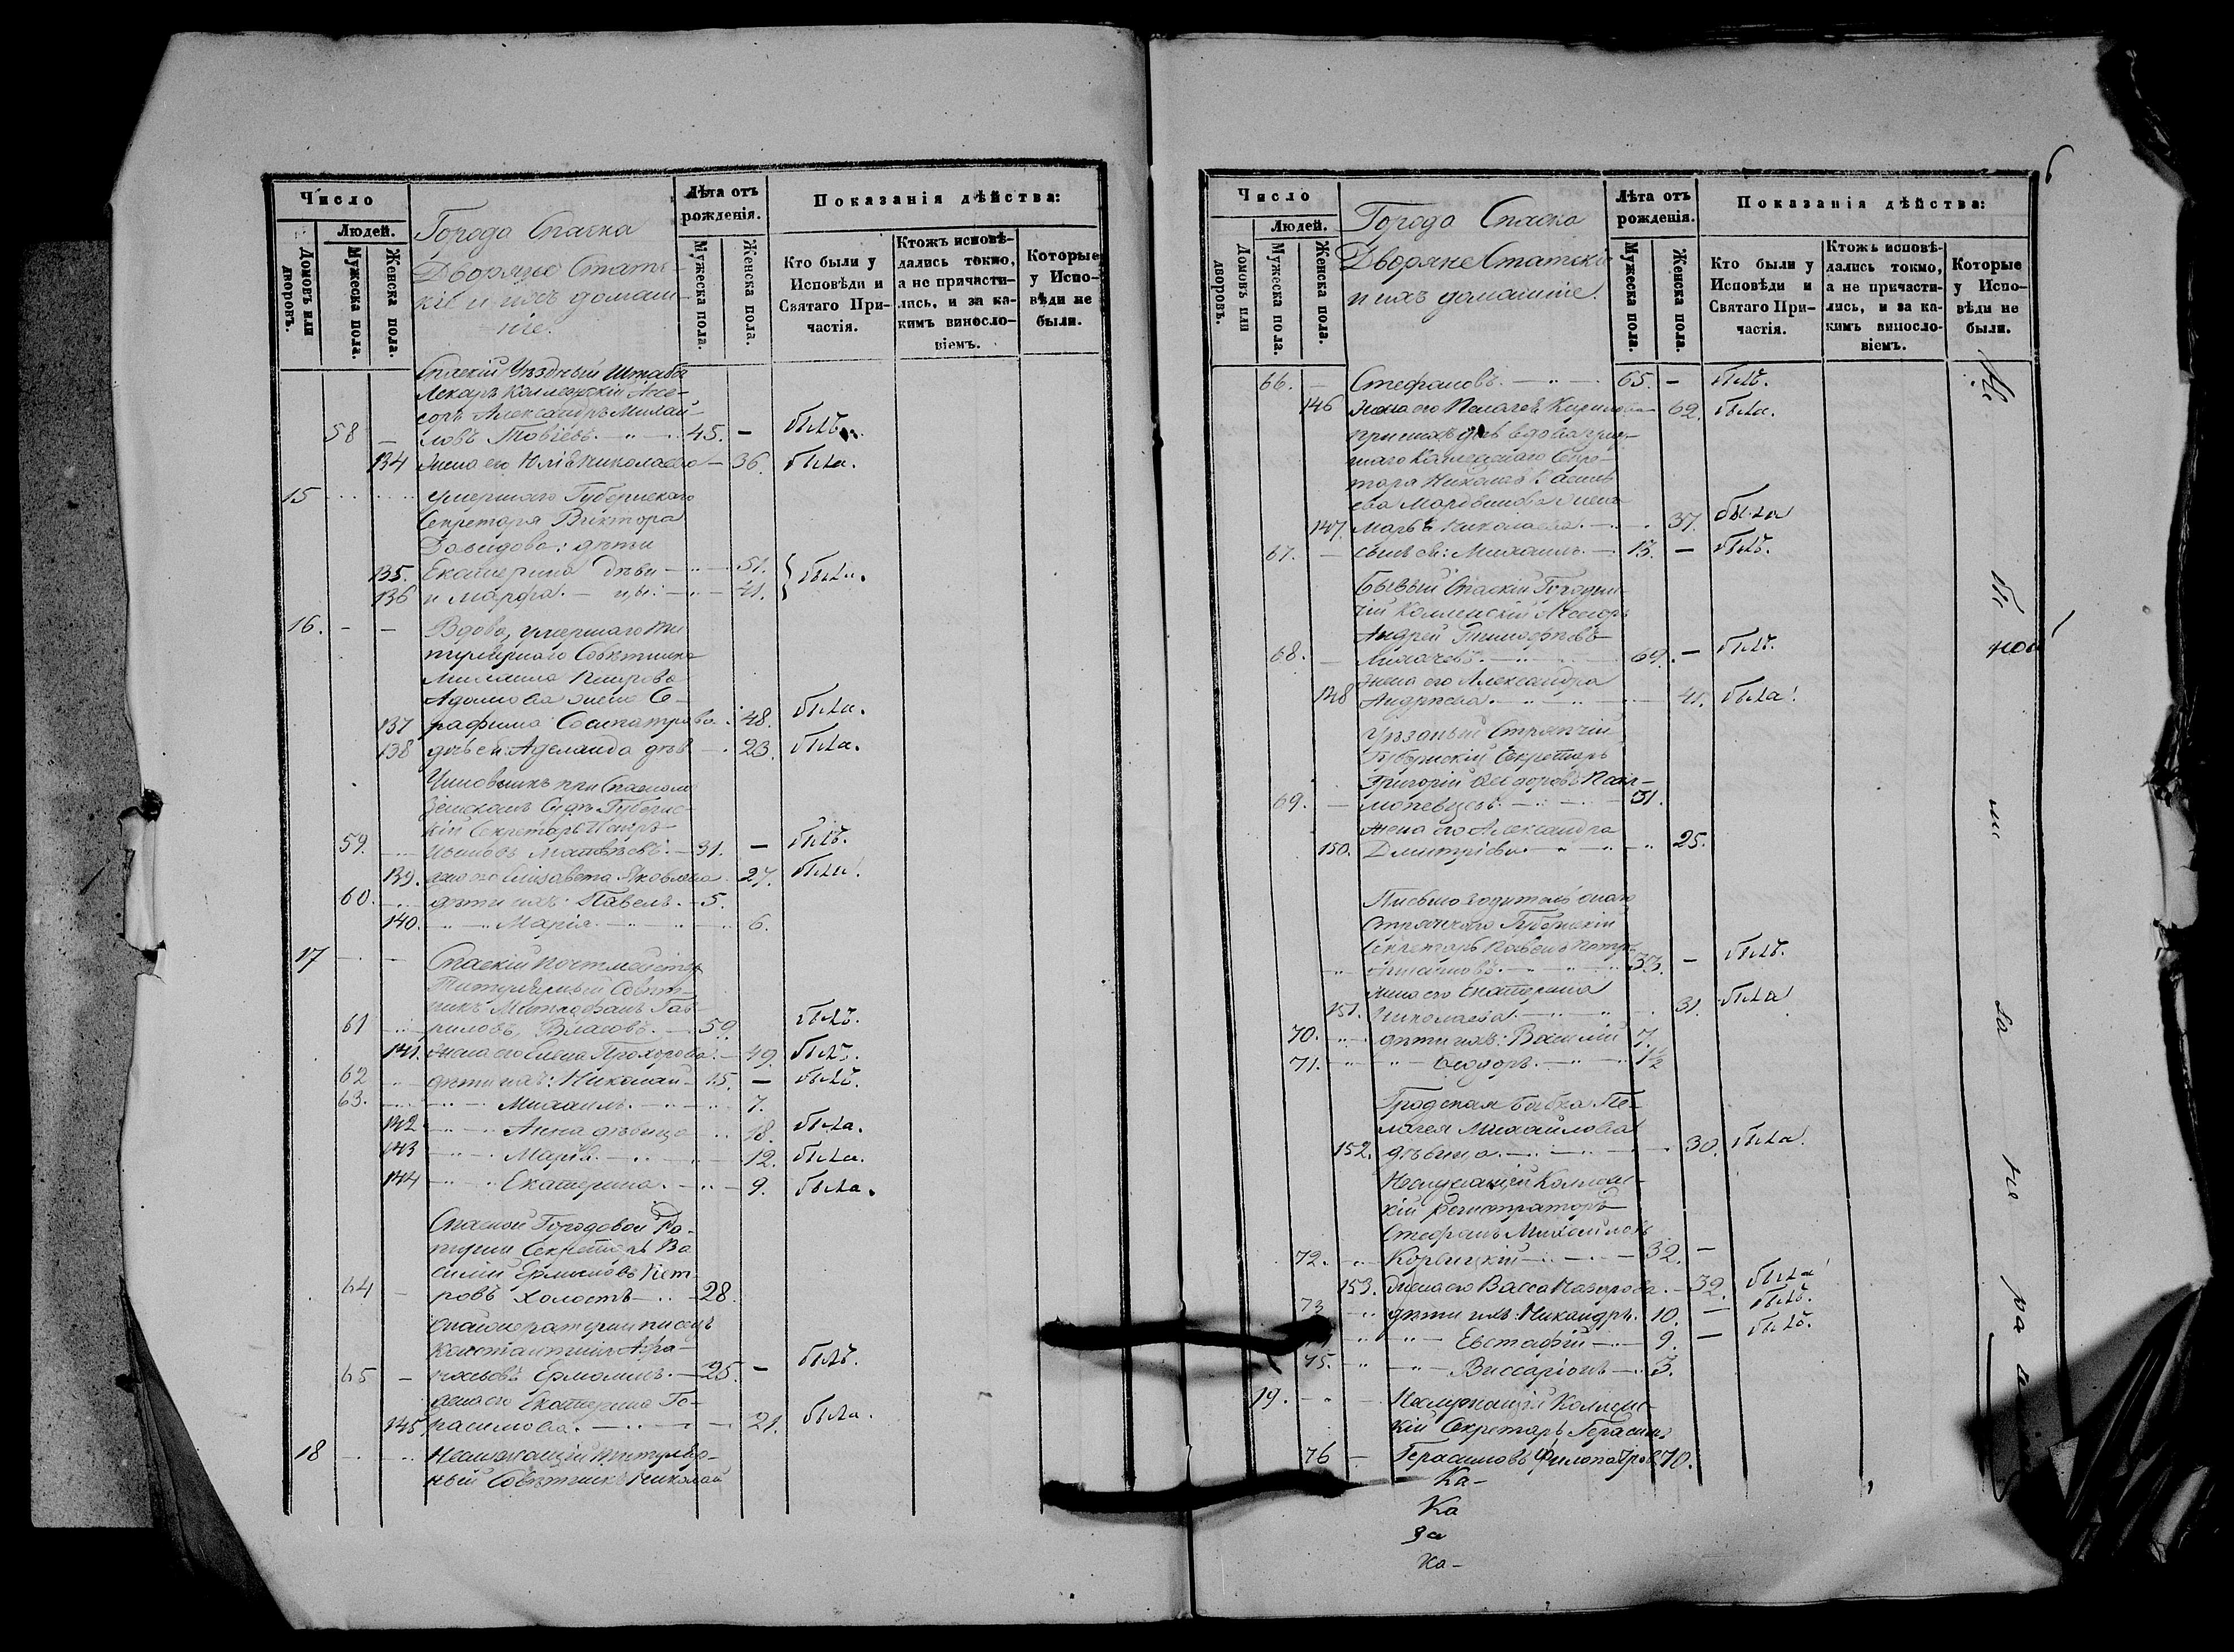 Число
Людей.
Домовъ или дворовъ.
Мужеска пола.
Женска пола.
Города Спаска
Дворяне Статс-
кіе и ихъ домаш-
ніе.
Лѣта отъ рожденія.
Мужеска пола.
Женска пола.
Показанія дѣйства:
Кто были у Исповѣди и Святаго При-частія.
Ктожъ исповѣ-дались токмо, а не причасти-лись, и за ка-кимъ винosло-віемъ.
Которые у Испо-вѣди не были.
Спаскій Уѣздный Штабъ
Лекарь Коллежскій Ассе-
соръ Александръ Михай-
58 — ловъ 45. — былъ.
134 жена его Юлія Николаева — 36. была.
15 умершаго Губернскаго
Секретаря Виктора
Давыдова: дѣти
135. Екатерина дѣви — 51.
136 и Марфа. — цы — 41. } были.
16. — — Вдова, умершаго Ти
тулярнаго Совѣтника
Михаила Петрова
Адамова жена Се-
137 рафима Сосипатрова. 48. была.
138 дочь ея: Аделаида дѣв — 23. была.
Чиновникъ при Спаскомъ
Земскомъ Судѣ Губернс-
кій Секретарь Петръ
59. Матвѣевъ. — 31. — былъ.
139. жена его Елизавета Яковлева 27. была.
60. дѣти ихъ: Павелъ. — 5.
140. Марія — 6.
17 — — Спаскій почтмейстеръ
Титулярный Совѣт-
никъ Митрофанъ Гав-
61 риловъ Власовъ. — 50 былъ.
141. жена его Елена Прохорова. — 49. была.
62 дѣти ихъ: Николай — 15. — былъ.
63. Михаилъ. — 7.
142 Анна дѣвица 18. была.
143 Марія. — 12. была.
144 Екатерина. — 9. была.
Спаской Городовой Ра-
туши Секретарь Ва
силій Ермиловъ Пет-
64 — ровъ холостъ — 28.
писецъ
Константинъ
65 — Ермолинъ. — 25. — былъ.
жена его Екатерина Ге-
145 расимова. — 21. была.
18 Неслужащій Титуляр-
ный Совѣтникъ Николай
6
Число
Людей.
Домовъ или дворовъ.
Мужеска пола.
Женска пола.
Города Спаска
Дворяне Статскіе
и ихъ домашніе.
Лѣта отъ рожденія.
Мужеска пола.
Женска пола.
Показанія дѣйства:
Кто были у Исповѣди и Святаго При-частія.
Ктожъ исповѣ-дались токмо, а не причасти-лись, и за ка-кимъ винosло-віемъ.
Которые у Испо-вѣди не были.
66. — Стефановъ. — 65. — былъ.
146 жена его Пелагея Кирилова 62. была.
при нихъ дочь вдова умер-
шаго Коллежскаго Секре-
таря Николая Василь
ева Мартынова жена
147. Марья Николаева. — 37. была
67. — сынъ ея: Михаилъ. — 13. — былъ.
Бывый Спаскій Городни-
чій Коллежскій Ассесоръ
Андрей Тимофѣевъ
68. — Лихачевъ. — 69. — былъ.
жена его Александра
148 Андреева. — 41. была.
Уѣздный Стряпчій
Губернскій Секретарь
Григорій Федоровъ
69. — 31.
жена его Александра
150. Дмитріева. — 25.
Письмоводитель онаго
Стряпчаго Губернскій
Секретарь Павелъ Петровъ
33. — былъ.
жена его Екатерина
151. Николаева. — 31. была
70. дѣти ихъ: Василій 7.
71. Ѳедоръ. — 1½
Градская бабка Пе-
лагея Михайлова
152. дѣвица. — 30. была.
Неслужащій Коллежс-
кій Регистраторъ
Стефанъ Михайловъ
72. Корвицкій — 32. —
153. жена его Васса Назарова. — 32. была
73 дѣти ихъ: Никандръ. 10. — былъ.
Евстафій — 9. — былъ.
75. Виссаріонъ — 3.
19. Неслужащій Коллежс-
кій Секретарь Герасимъ
76 — Герасимовъ Филопатровъ 70.
Ка-
Ка
за
ка-